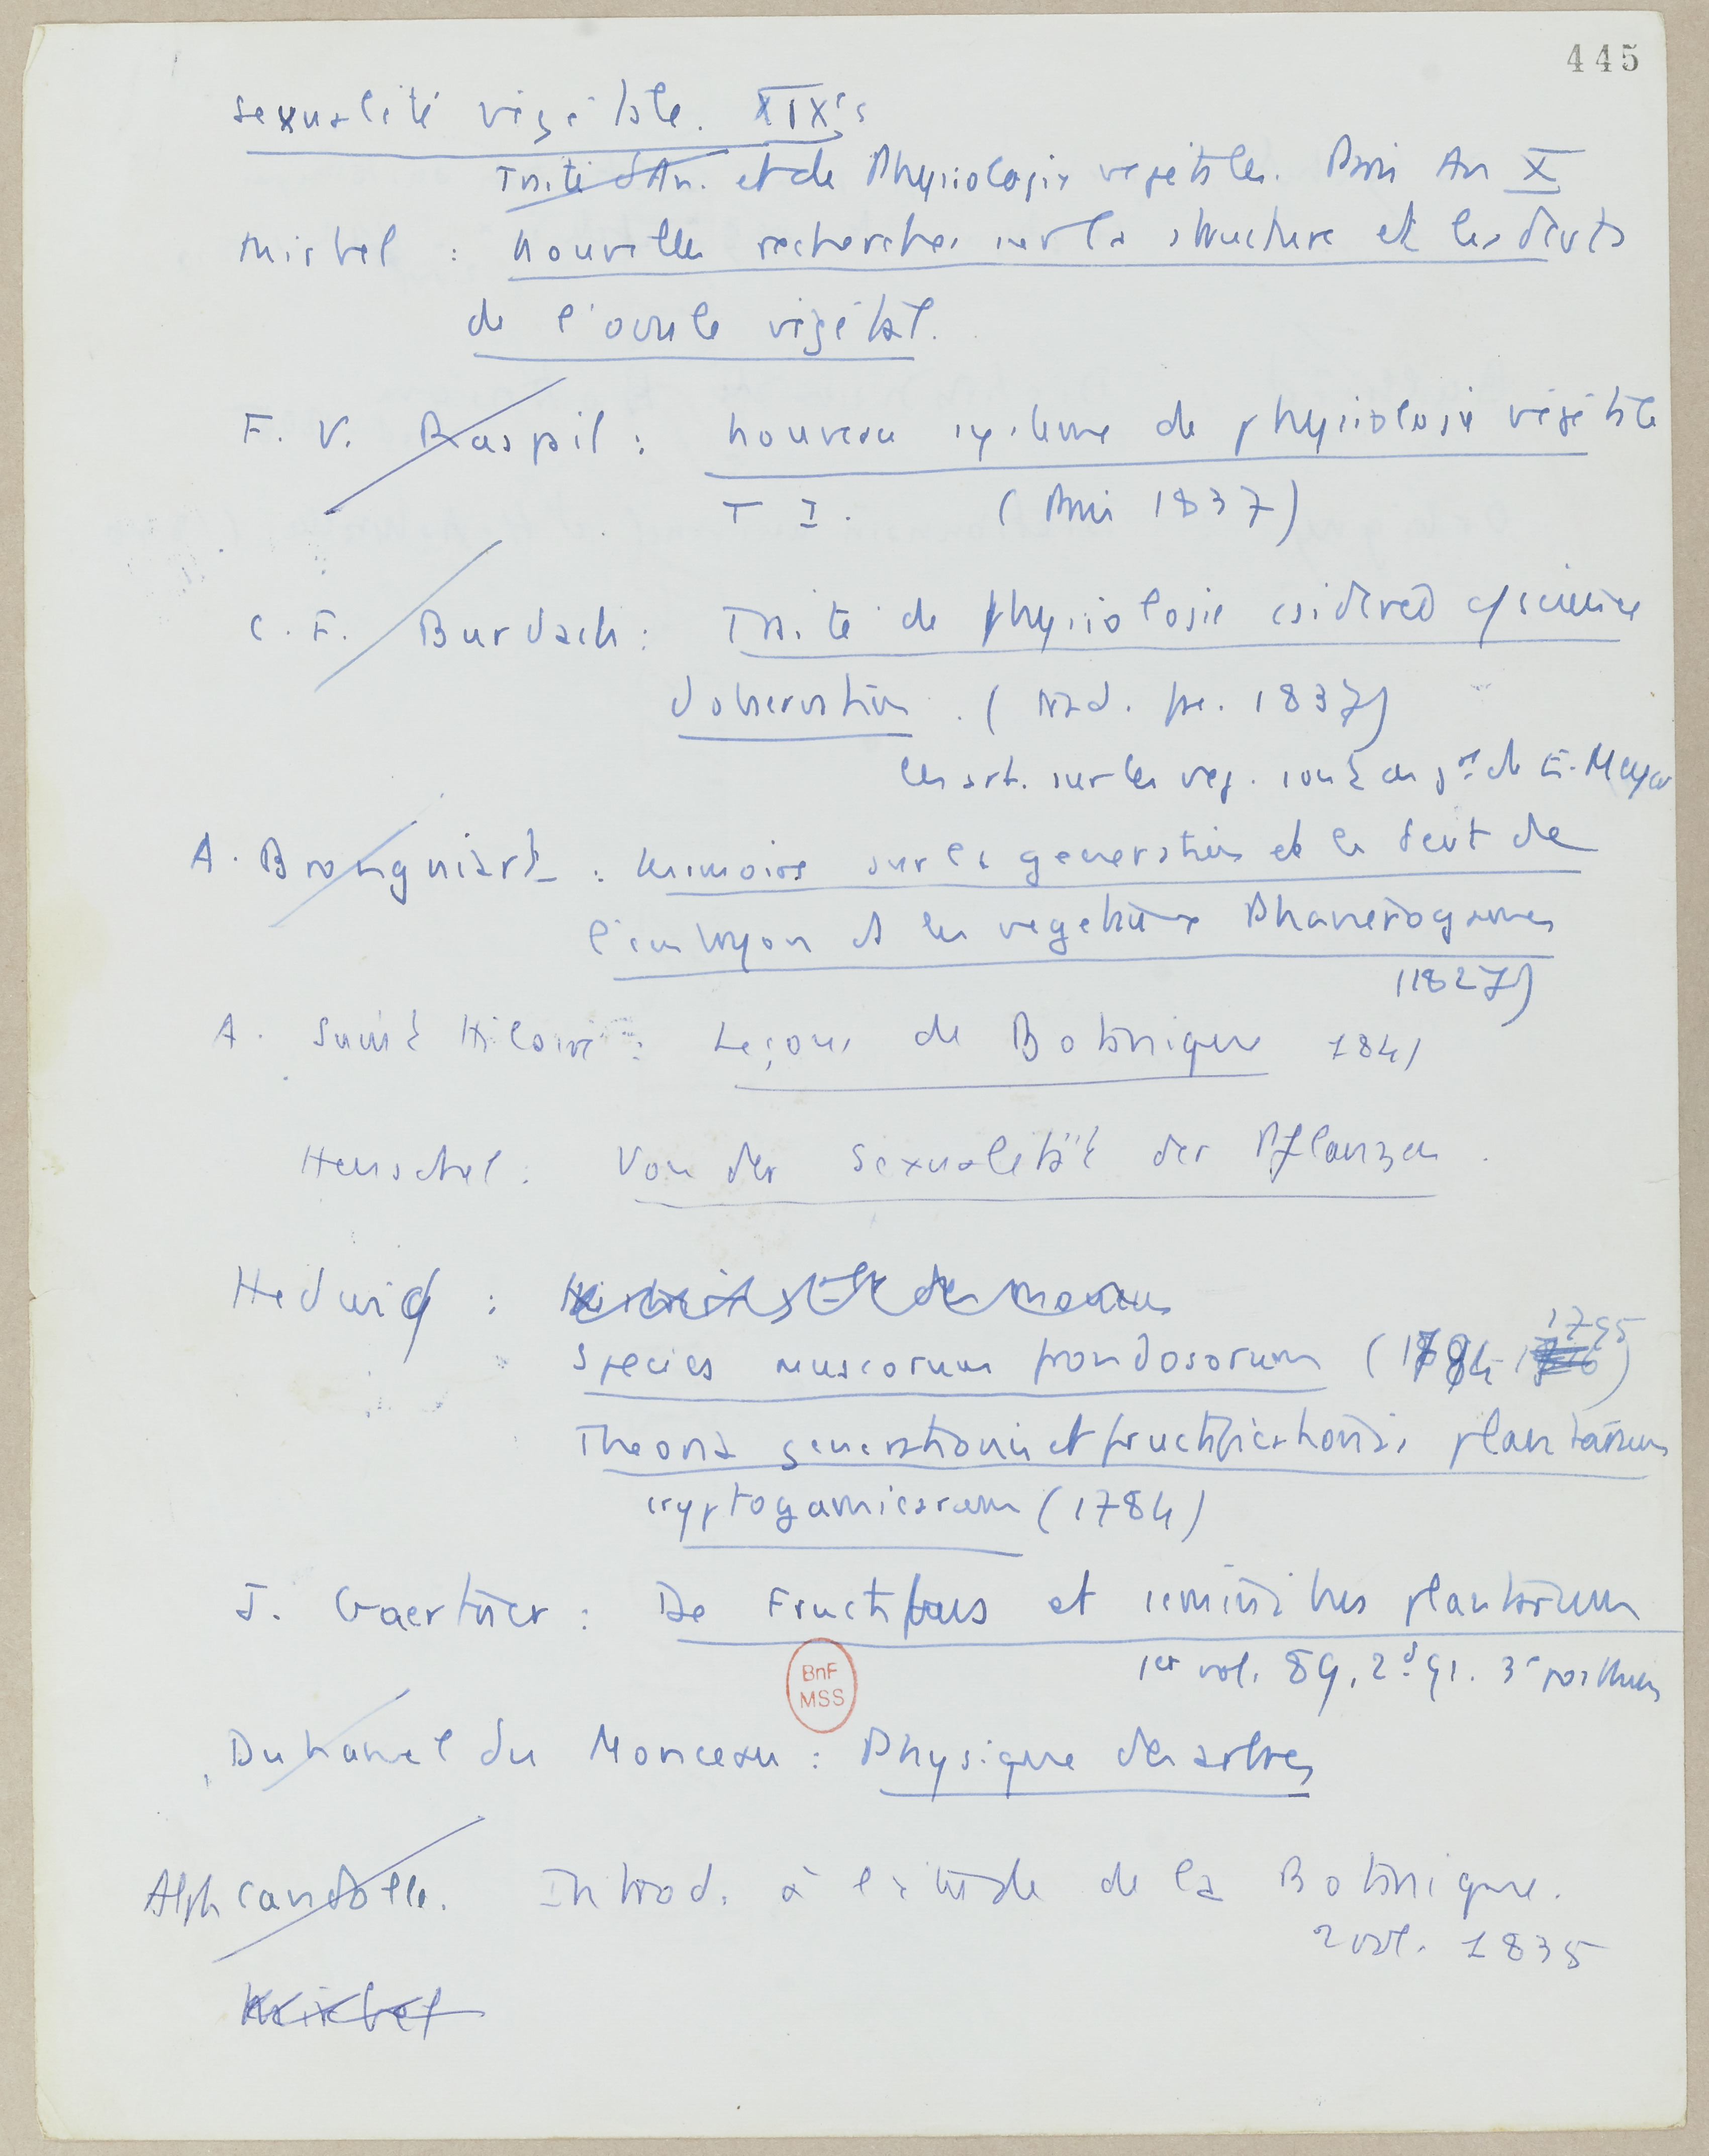 445
sexualité végétale. XIXe s
Traité d'An. et de Physiologie végétales. Paris An X
Mirbel : Nouvelles recherches sur la structure et les devts
de l'ovule végétal.
F. V. Raspail : Nouveau système de physiologie végétale
T I. (Paris 1837)
C. F. Burdach : Traité de physiologie csidérée c/ science
d'observation. (trad. fse. 1837)
les art. sur les veg. sont en gal de E. Meyer
A. Brongniart : Mémoire sur la generation et le devt de
l'embryon ds les vegetaux Phanerogames
(1827)
A. Saint Hilaire : Leçons de Botanique 1841
Henschel : Von der Sexualität der Pflanzen.
Hedwig :
Species muscorum frondosorum (1784-1795)
Theoria generationis et fructificationis plantarum
cryptogamicarum (1784)
J. Gaertner : De Fructibus et seminibus plantarum
1er vol. 89, 2d 91. 3e posthume
BnF
MSS
Duhamel du Monceau : Physique des arbres
Alph Candolle. Introd. à l'étude de la Botanique.
2 vol. 1835
Mirbel